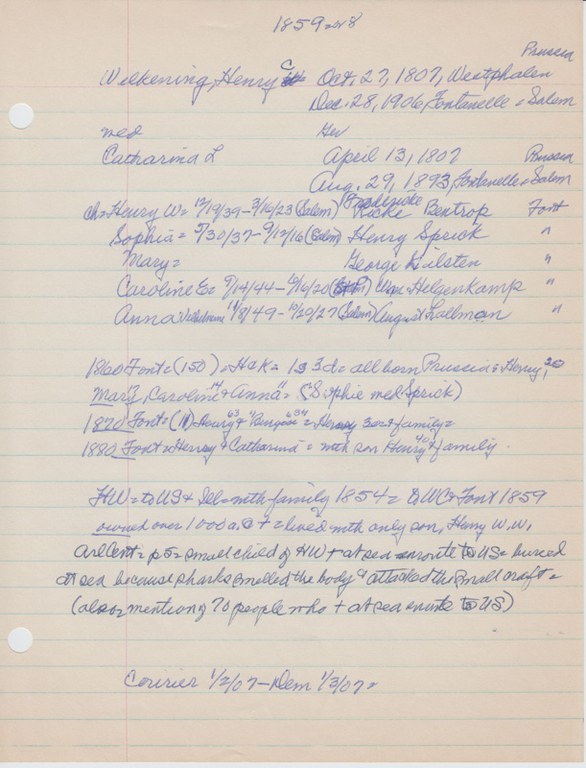 1859=48
Prussia
Wilkening, Henry C Oct, 27, 1807, Westphalen
Dec. 28, 1906, Fontanelle = Salem
med
Catharina L April 13, 1807 Prussia
Aug. 29, 1893, Fontanelle = Salem
ch = Henry W = 12/19/39 - 3/16/23 (Salem) Bentrop Font
Sophia = 5/30/37 - 9/12/16 (Salem) Henry Sprick "
Mary = George Hilsten "
Caroline E = 9/14/44 - Wm Helgenkamp "
Anna 11/8/49 - 10/20/27 (Salem) August Lallman "
1860 Font = (150) = H & K = 1s 3d = all born Prussia = Henry, 20
Mary, Caroline 14 & Anna 11 = (Sophie med Sprick)
1870 Font = Henry 63 & = Henry & family =
1880 Font = Henry & Catharina = with son Henry 40 & family.
HW = to US & Ill = with family 1854 = to WC & Font 1859
owned over 1000 a. + = lived with only son, Henry W.W.
= p 5 = small child of HW + at sea enroute to US = buried
at sea because sharks smelled the body & attacked the small craft =
(also mentions 70 people who + at sea enroute to US)
Courier 1/2/07 - Dem 1/3/07 =